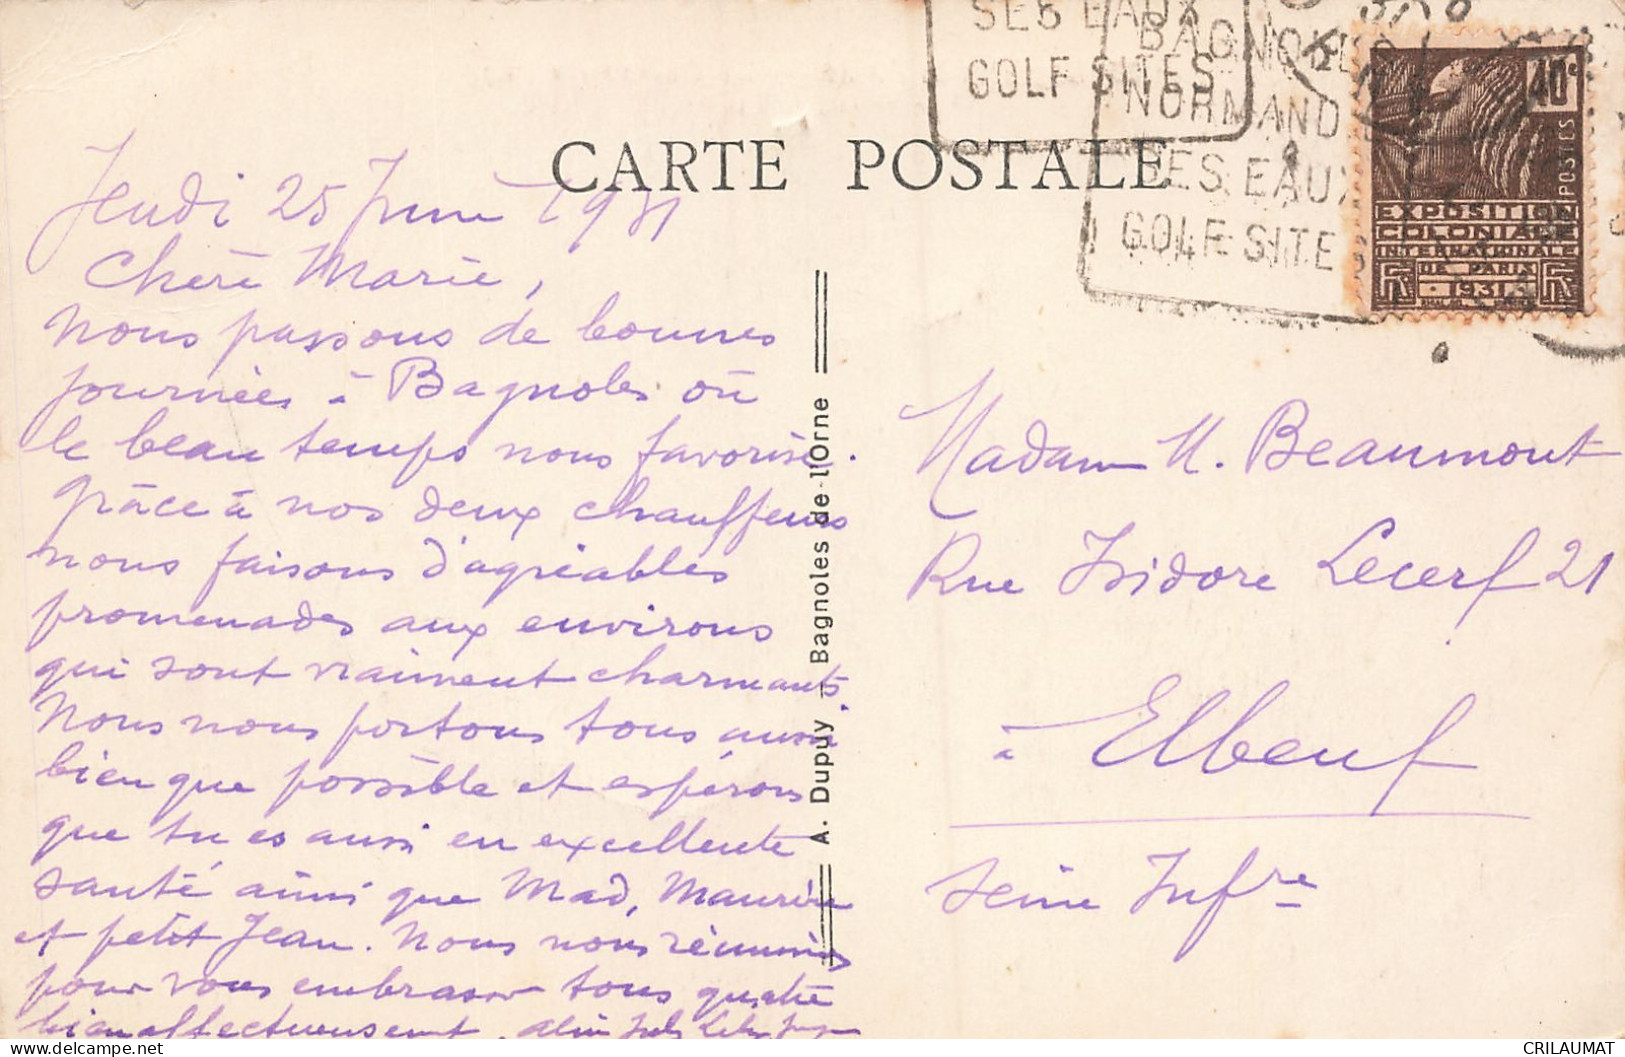 SES EAUX
GOLF SITES
BAGNOLES
NORMAND
SES EAUX
GOLF SITES
40c
POSTES
EXPOSITION
COLONIALE
INTERNATIONALE
DE PARIS
1931
CARTE POSTALE
Jeudi 25 Juin 1931
Chère Marie,
Nous passons de bonnes
journées à Bagnoles où
le beau temps nous favorise.
Grâce à nos deux chauffeurs
nous faisons d'agréables
promenades aux environs
qui sont vraiment charmants.
Nous nous portons tous aussi
bien que possible et espérons
que tu es aussi en excellente
santé ainsi que Mad, Maurice
et petit Jean. Nous nous réunissons
pour vous embrasser tous quatre
bien affectueusement.
A. Dupuy – Bagnoles de l'Orne
Madame M. Beaumont
Rue Isidore Lecerf 21
à Elbeuf
Seine Infre
CRILAUMAT